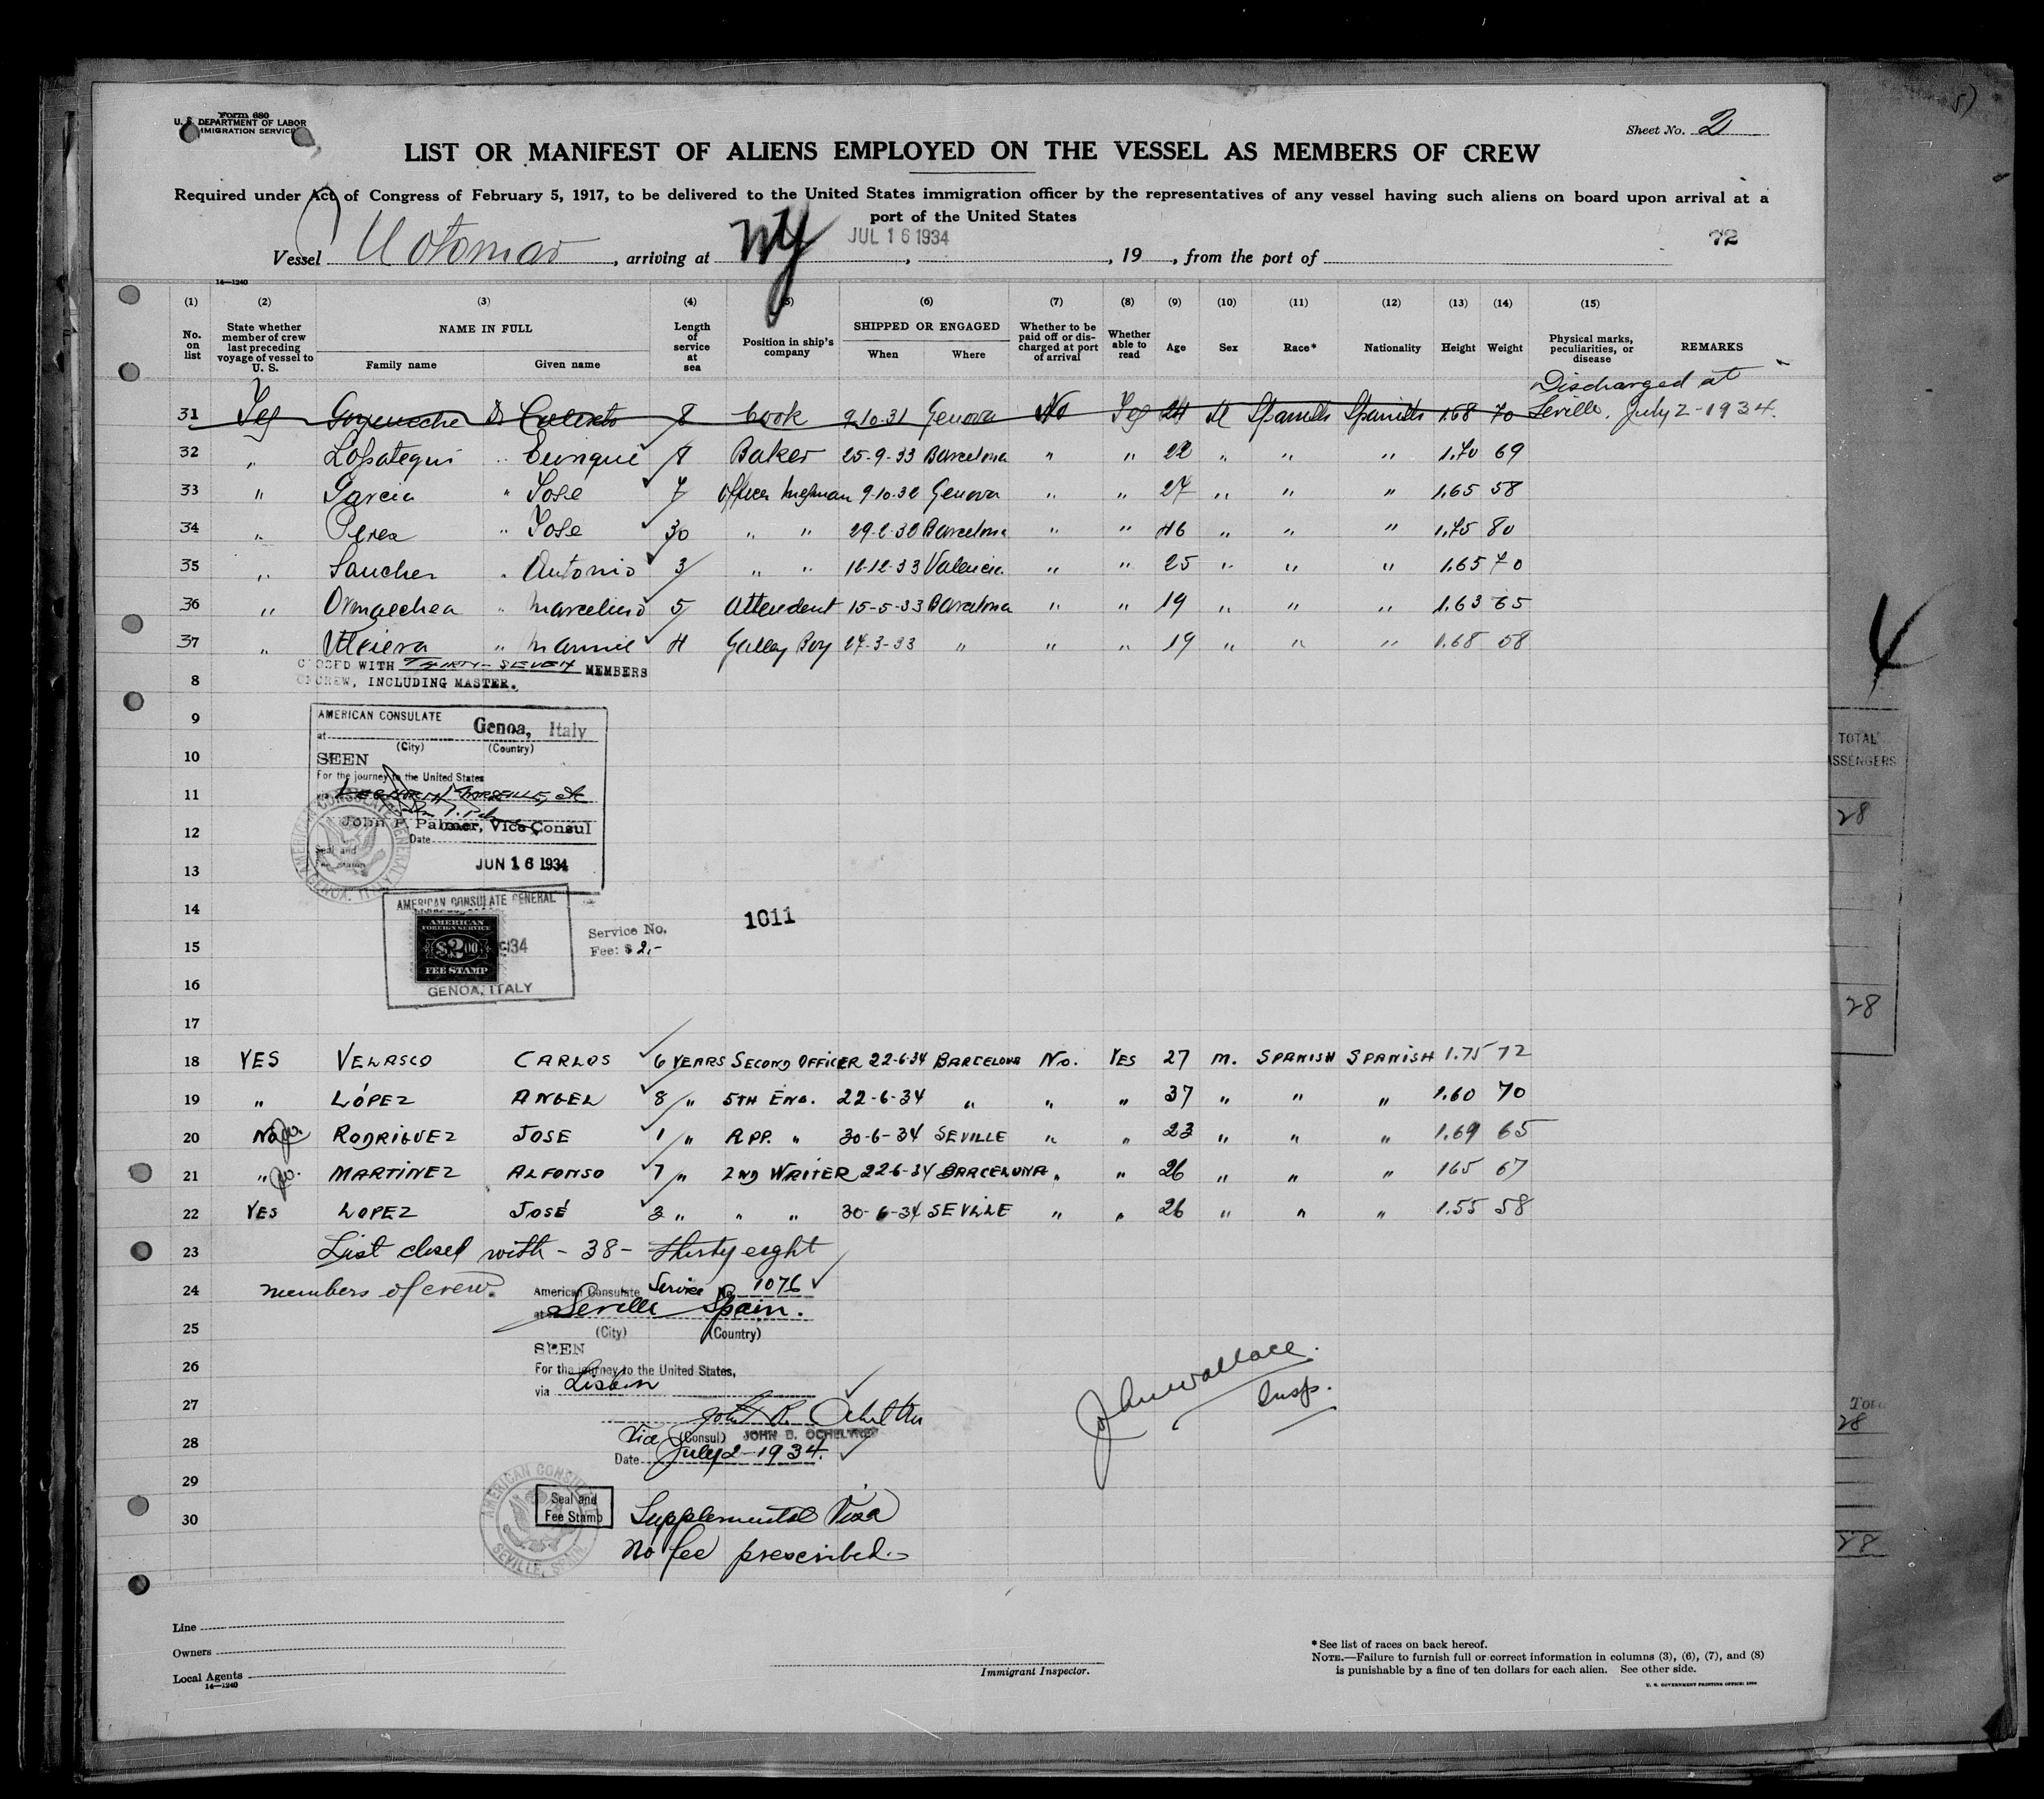 Form 680
U. S. DEPARTMENT OF LABOR
IMMIGRATION SERVICE
Sheet No. 2
LIST OR MANIFEST OF ALIENS EMPLOYED ON THE VESSEL AS MEMBERS OF CREW
Required under Act of Congress of February 5, 1917, to be delivered to the United States immigration officer by the representatives of any vessel having such aliens on board upon arrival at a
port of the United States
72
Vessel , arriving at NY JUL 16 1934 , 19 , from the port of
14—1240
(1) (2) (3) (4) (5) (6) (7) (8) (9) (10) (11) (12) (13) (14) (15)
No. on list State whether member of crew last preceding voyage of vessel to U. S. NAME IN FULL Family name Given name Length of service at sea Position in ship's company SHIPPED OR ENGAGED When Where Whether to be paid off or discharged at port of arrival Whether able to read Age Sex Race* Nationality Height Weight Physical marks, peculiarities, or disease REMARKS
31 Yes Goyeneche Calixto 8 Cook 9-10-31 Genova No Yes 24 M Spanish Spanish 1.68 70 Discharged at Seville, July 2-1934.
32 " Lopategui " 8 Baker 25-9-33 Barcelona " " 22 " " " 1.70 69
33 " Garcia " Jose 7 Officer Messman 9-10-32 Genova " " 27 " " " 1.65 58
34 " Perez " Jose 30 " " Barcelona " " 46 " " " 1.75 80
35 " Sanchez " Antonio 3 " " 12-12-33 Valencia " " 25 " " " 1.65 70
36 " Ormaechea " Marcelino 5 Attendent 15-5-33 Barcelona " " 19 " " " 1.63 65
37 " " Manuel 4 Galley Boy 24-3-33 " " " 19 " " " 1.68 58
CLOSED WITH THIRTY-SEVEN MEMBERS
OF CREW, INCLUDING MASTER.
8
9
10
11
12
13
14
15
16
17
AMERICAN CONSULATE
at Genoa, Italy
(City) (Country)
SEEN
For the journey to the United States
via LEGHORN, MARSEILLE,
John P. Palmer, Vice Consul
Date
Seal and
Fee stamp
JUN 16 1934
AMERICAN CONSULATE GENERAL
GENOA, ITALY
AMERICAN CONSULATE GENERAL
AMERICAN
FOREIGN SERVICE
$2.00
FEE STAMP
GENOA, ITALY
Service No. 1011
Fee: $ 2,-
18 YES VELASCO CARLOS 6 YEARS SECOND OFFICER 22-6-34 BARCELONA No. YES 27 M. SPANISH SPANISH 1.75 72
19 " LÓPEZ ANGEL 8 " 5TH ENG. 22-6-34 " " " 37 " " " 1.60 70
20 No RODRIGUEZ JOSE 1 " APP. " 30-6-34 SEVILLE " " 23 " " " 1.69 65
21 " MARTINEZ ALFONSO 7 " 2ND WRITER 22-6-34 BARCELONA " " 26 " " " 165 67
22 YES LOPEZ JOSÉ 3 " " " 30-6-34 SEVILLE " " 26 " " " 1.55 58
23 List closed with - 38 - thirty eight
24 members of crew.
25
26
27
28
29
30
American Consulate Service No. 1076
at Seville Spain.
(City) (Country)
SEEN
For the journey to the United States,
via Lisbon
Vice (Consul) JOHN B. OCHELTREE
Date July 2-1934.
Seal and
Fee Stamp
AMERICAN CONSULATE
SEVILLE, SPAIN
Supplemental Visa
No fee prescribed.
John Wallace.
Insp.
Line
Owners
Local Agents
14—1240
Immigrant Inspector.
*See list of races on back hereof.
NOTE.—Failure to furnish full or correct information in columns (3), (6), (7), and (8)
is punishable by a fine of ten dollars for each alien. See other side.
U. S. GOVERNMENT PRINTING OFFICE
TOTAL
PASSENGERS
28
28
28
28